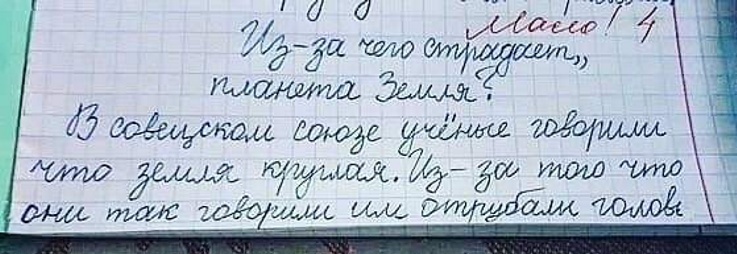 Мало! 4
Из-за чего страдает,,
планета Земля?
В совецском союзе учёные говорили
что земля круглая. Из-за того что
они так говорили им отрубали головы